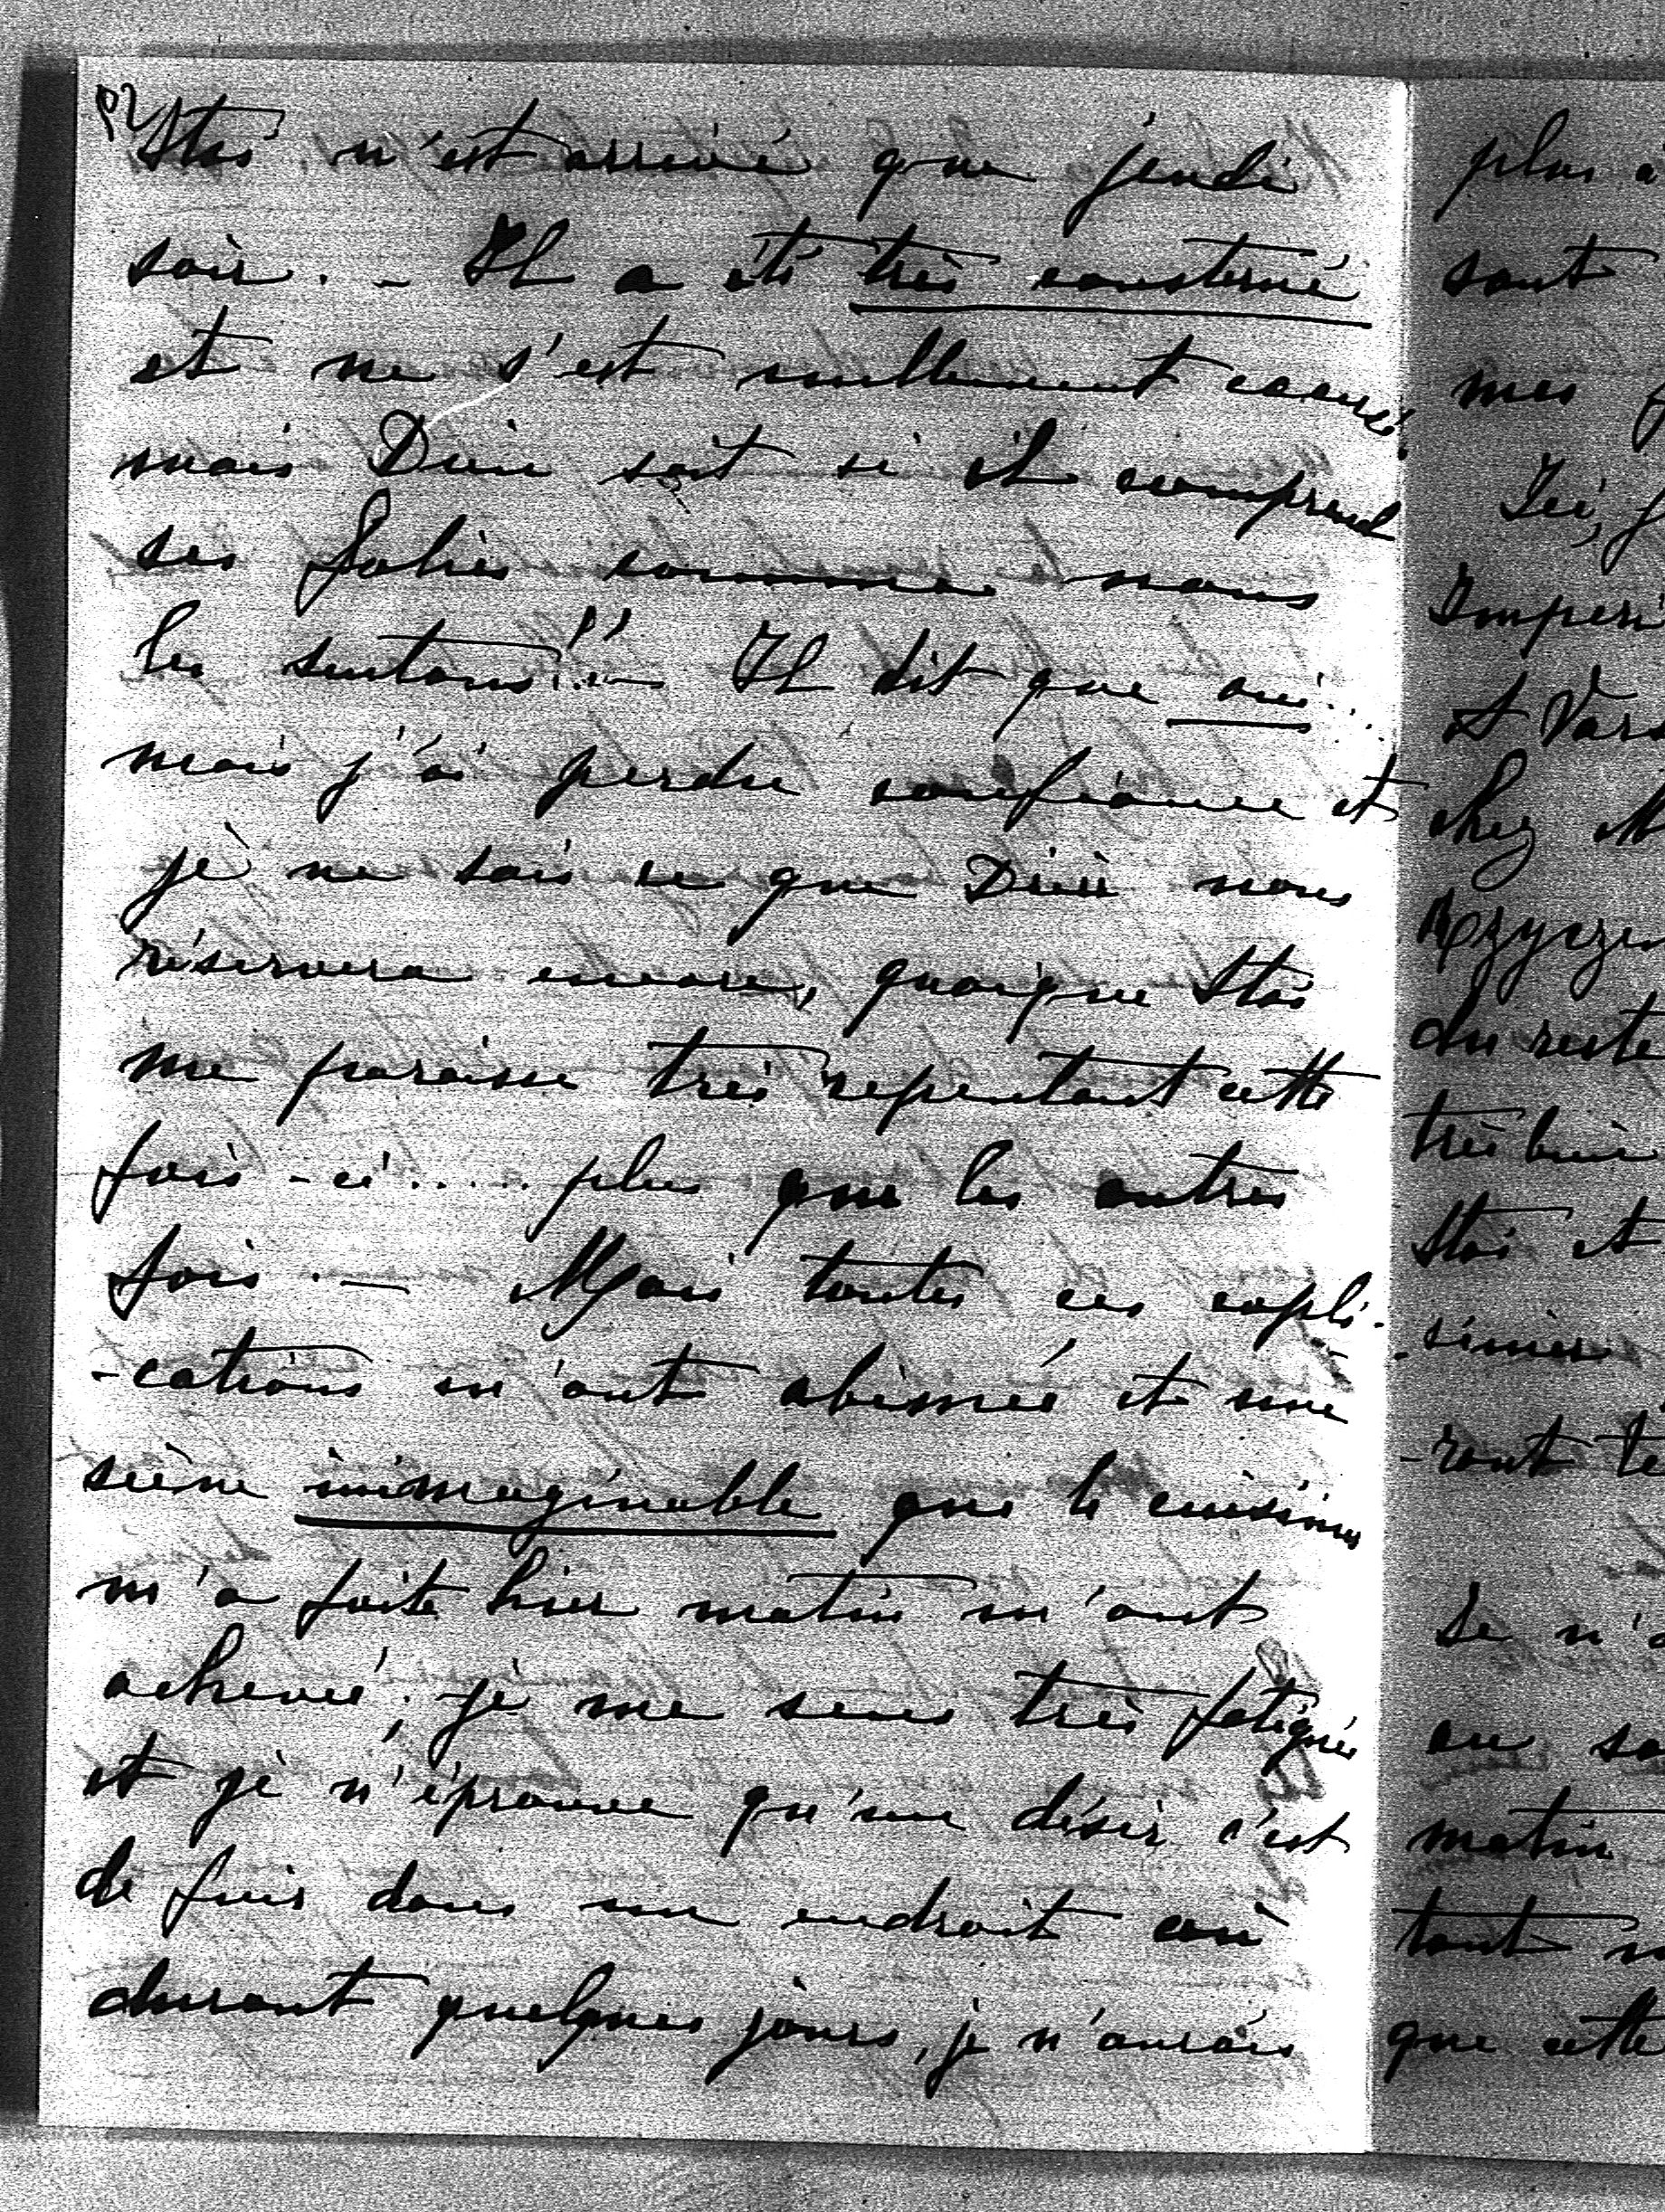 Staś n'est arrivé que jeudi
soir. – Il a été très consterné
et ne s'est nullement excusé.
mais Dieu sait si il comprend
ses folies comme nous
les sentons!!.– Il dit que oui...
mais j'ai perdu confiance et
je ne sais ce que Dieu nous
réservera encore, quoique Staś
me paraisse très repentant cette
fois-ci..... plus que les autres
fois.– Mais toutes ces expli-
-cations m'ont abîmée et une
scène inimaginable que le cuisinier
m'a faite hier matin m'ont
achevée; je me sens très fatiguée
et je n'éprouve qu'un désir c'est
de fuir dans un endroit où
durant quelques jours, je n'aurais
plus à
sont
mes
Ici,
Imperi
A Vars
chez M
du reste
très bien
Staś et
-sinier
-ront te
Je n'a
en sa
matin
tout m
que cette